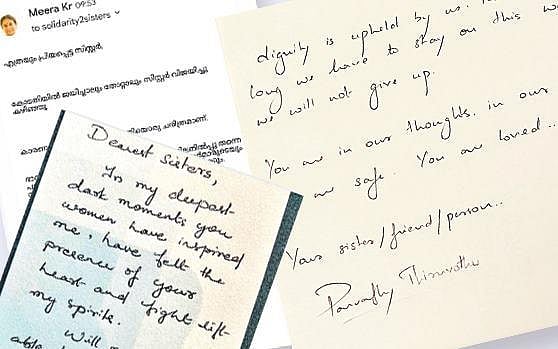 Meera Kr 09:53
to solidarity2sisters
എത്രയും പ്രിയപ്പെട്ട സിസ്റ്റർ,
കോടതിയിൽ ജയിച്ചാലും തോറ്റാലും സിസ്റ്റർ വിജയിച്ചു
കഴിഞ്ഞു.
ചരിത്രമാണ്.
Dearest Sisters,
In my deepest
dark moments you
women have inspired
me, have felt the
presence of your
heart and fight lift
my spirits.
Will
dignity is upheld by us.
long we have to stay on this
we will not give up.
You are in our thoughts, in our
are safe. You are loved..
Your sister/friend/person..
Parvathy Thiruvothu